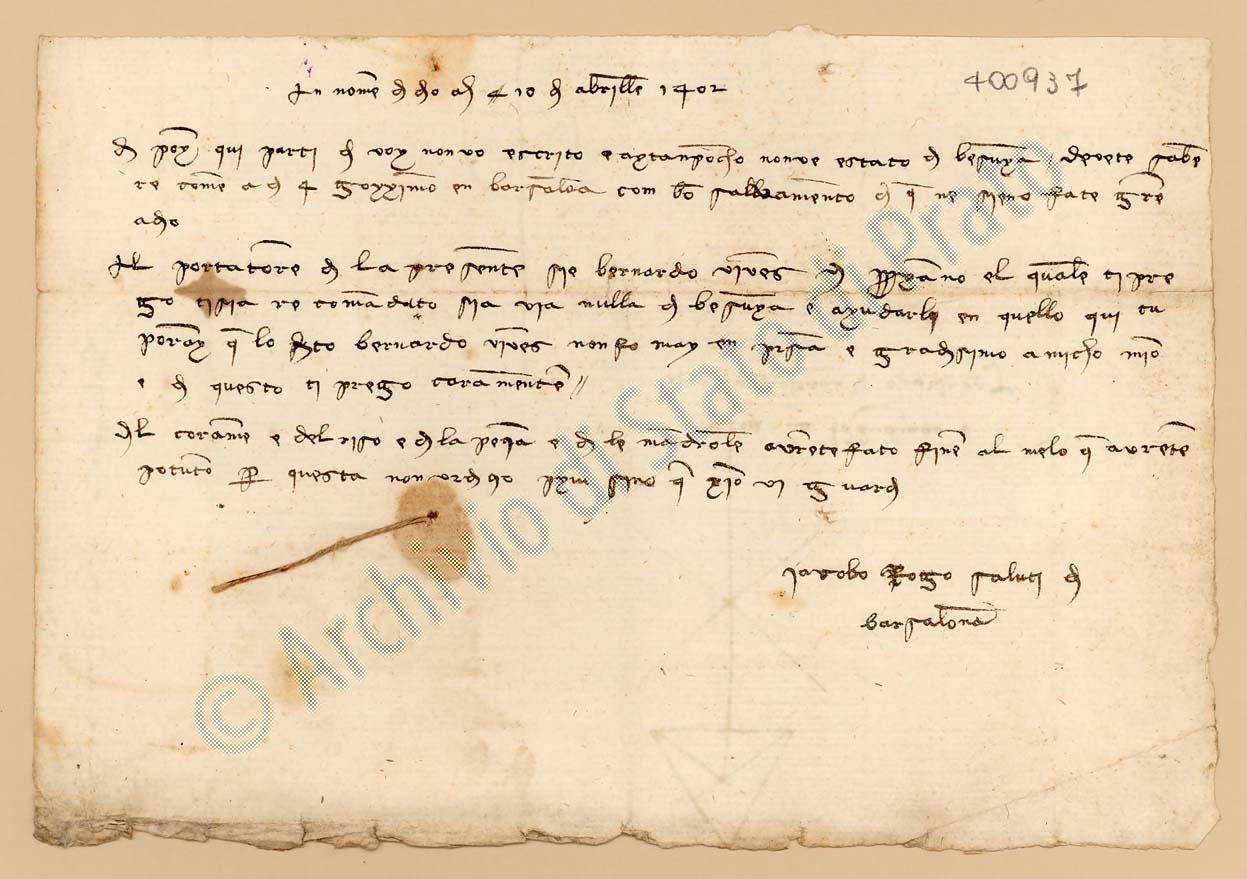 In nome di dio adi 10 di abrille 1402
400937
di poy qui parti di voy non vo escrito e axtanpocho non ve estato di besunya devete sabe
re come a di 4 gonximo en barsalona com bo salvamento di que ne sieno fate gre
adio
Il portatore di la presente sie bernardo vives di el quale ti pre
go ti sia recomandato sia via nulla di besunya e axudarli en quello qui tu
poray que lo dito bernardo vives non fo may en e gradisimo amicho mio
e di questo ti prego caramente //
del corame e del riso e di la e di le mandrole avrete fato fine al melo que avrete
potuto per questa non vi dicho piu sino que xo vi guardi
Jacobo Rogo saluti di
barsalona
© Archivio di Stato di Prato